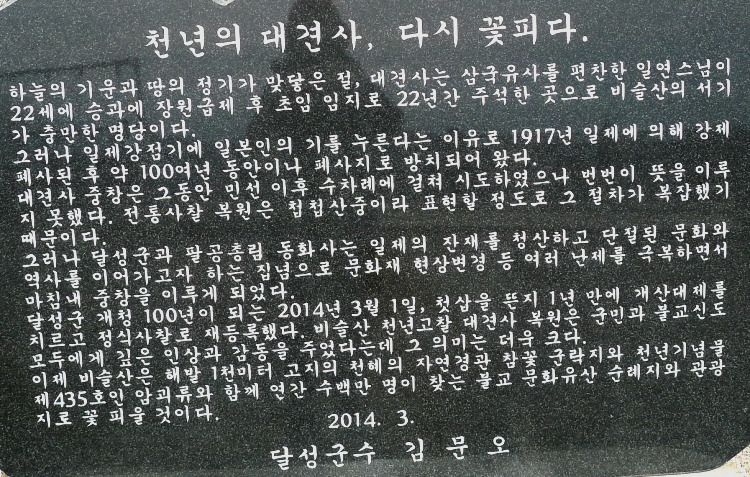 천년의 대견사, 다시 꽃피다.
하늘의 기운과 땅의 정기가 맞닿은 절, 대견사는 삼국유사를 편찬한 일연스님이
22세에 승과에 장원급제 후 초임 임지로 22년간 주석한 곳으로 비슬산의 서기
가 충만한 명당이다.
그러나 일제강점기에 일본인의 기를 누른다는 이유로 1917년 일제에 의해 강제
폐사된 후 약 100여년 동안이나 폐사지로 방치되어 왔다.
대견사 중창은 그동안 민선 이후 수차례에 걸쳐 시도하였으나 번번이 뜻을 이루
지 못했다. 전통사찰 복원은 첩첩산중이라 표현할 정도로 그 절차가 복잡했기
때문이다.
그러나 달성군과 팔공총림 동화사는 일제의 잔재를 청산하고 단절된 문화와
역사를 이어가고자 하는 집념으로 문화재 현상변경 등 여러 난제를 극복하면서
마침내 중창을 이루게 되었다.
달성군 개청 100년이 되는 2014년 3월 1일, 첫삽을 뜬지 1년 만에 개산대제를
치르고 정식사찰로 재등록했다. 비슬산 천년고찰 대견사 복원은 군민과 불교신도
모두에게 깊은 인상과 감동을 주었다는데 그 의미는 더욱 크다.
이제 비슬산은 해발 1천미터 고지의 천혜의 자연경관 참꽃 군락지와 천년기념물
제435호인 암괴류와 함께 연간 수백만 명이 찾는 불교 문화유산 순례지와 관광
지로 꽃 피울 것이다.
2014. 3.
달성군수 김 문 오